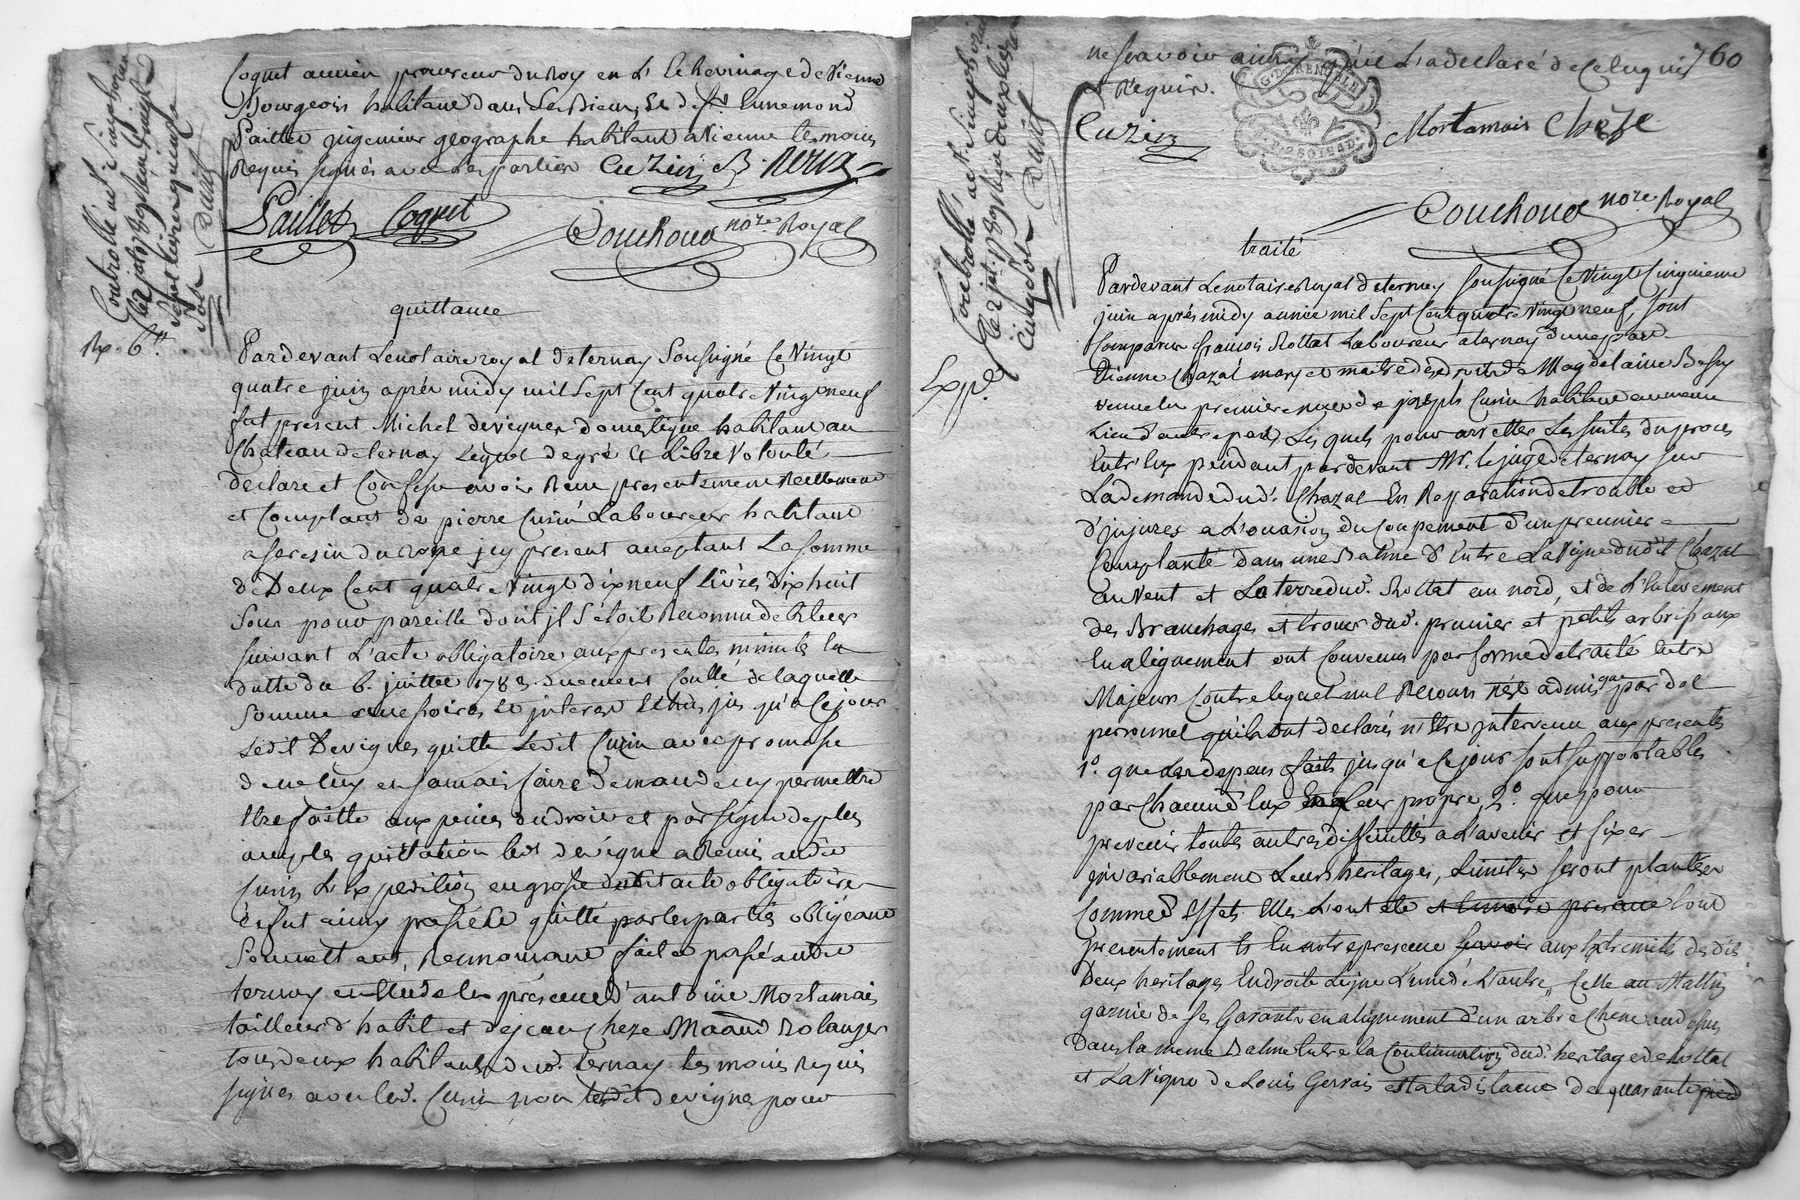 Coquet ancien procureur du Roy en L'Echevinage de Vienne
Bourgeois habitant dans Ledit lieu et de Sr. Ennemond
Paillet jngenieur géographe habitant a Vienne temoins
Requis signés avec Les parties Cuzin
Paillet Coquet Couchoud nore. Royal
Controllé a St. Simphorien
Le 2 juil. 1789
sept livres quinze
sols
quittance
Pardevant Le notaire royal de ternay Soussigné Ce Vingt
quatre juin aprés midy mil Sept Cent quatre Vingt neuf
fut present Michel devignes domestique habitant au
Chateau de ternay Lequel de gré et Libre Volonté
declare et Confesse avoir Reçu presentement Réellement
et Comptant de pierre Cusin Laboureur habitant
a seresin du Rosne jcy présent acceptant La somme
de Deux Cent quatre Vingt dixneuf livres dix huit
Sous pour pareille dont jl S'étoit Reconnu
suivant L'acte obligatoire aux presentes minutes en
datte du 6. juillet 1783. duement Conllé de laquelle
Somme accessoires et jnterets jusqu'a Ce jour
Ledit Devignes quitte Ledit Cusin avec promesse
de ne luy en jamais faire Demande ny permettre
Etre faitte aux peines de droit et par
quittation led. devigne a Remis audit
Cusin L'Expedition en grosse dudit acte obligatoire
Ce fut ainsy quitté par les parties obligeant
Soumettant, Renonçant fait et passé audit
ternay en presence d'antoine Mortamais
tailleur d'habit et de jean Cheze Maand Bolanger
tous deux habitants dud. ternay temoins Requis
signés avec led. Cusin non Ledit devignes pour
760
ne sçavoir ainsy qu'il L'a declaré de Ce Enquis
et Requis.
Cuzin Mortamais Cheze
Couchoud nore. Royal
Controllé a St. Simphorien
Le 2 juil. 1789
Cinq Sols
Exp.
traité
Pardevant Le notaire Royal de ternay soussigné Ce Vingt Cinquieme
juin aprés midy année mil Sept Cent quatre Vingt neuf, sont
Comparus françois Rollat Laboureur a ternay d'une part
Etienne Chazal mary et maitre des droits de Magdelaine Bessy
veuve en premiere noces de joseph Cusin habitant au meme
Lieu d'autre part, Lesquels pour arretter Les suites du procès
Entr'Eux pendant pardevant Mr. Le juge de ternay sur
La demande dud. Chazal En Reparation de trouble et
d'jnjures a L'ocasion du Coupement d'un prunier
Complanté dans une Balme d'Entre La Vigne dudit Chazal
au Vent et La terre dud. Rollat au nord, et de L'Enlevement
des Branchages et troncs dud. prunier et petits arbrisseaux
En alignement ont Convenus par forme de traité Entre
Majeurs Contre lequel nul Recours n'est admis que par dol
personnel qu'ils ont declarés n'Etre jntervenu aux présentes
1o. que Les depens faits jusqu'a Ce jour sont supportables
par Chacun d'Eux En leur propre, 2o. que pour
prevenir toutes autres difficultés a L'avenir et fixer
jnvariablement Leurs héritages, Limites seront plantées
Comme d'Effet Elles L'ont été
presentement Et En notre presence aux Extremités desdits
Deux heritages En droite Ligne L'une de L'autre, Celle au Matin
garnie de ses Garants en alignement d'un arbre Chene au dessus
Dans la meme Balme Entre la Continuation dud. heritage de Rollat
et La Vigne de Louis Gervais et a la distance de quarante pied